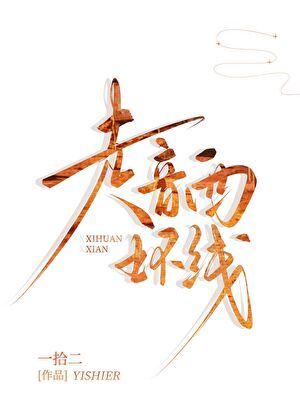 失音西
环线
XIHUAN
XIAN
一拾二
[作品] YISHIER